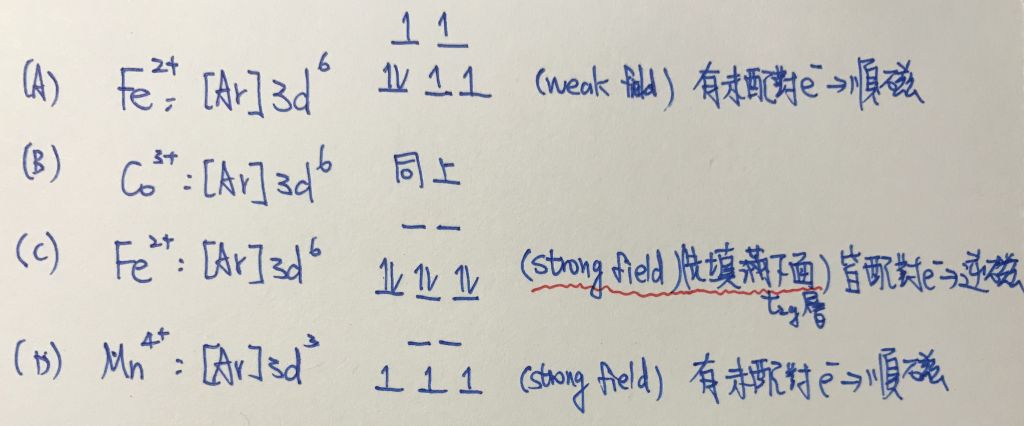 (A) Fe²⁺: [Ar]3d⁶ (weak field) 有未配對e⁻→順磁
(B) Co³⁺: [Ar]3d⁶ 同上
(C) Fe²⁺: [Ar]3d⁶ (strong field)後填滿下面) 皆配對e⁻→逆磁
t₂g層
(D) Mn⁴⁺: [Ar]3d³ (strong field) 有未配對e⁻→順磁